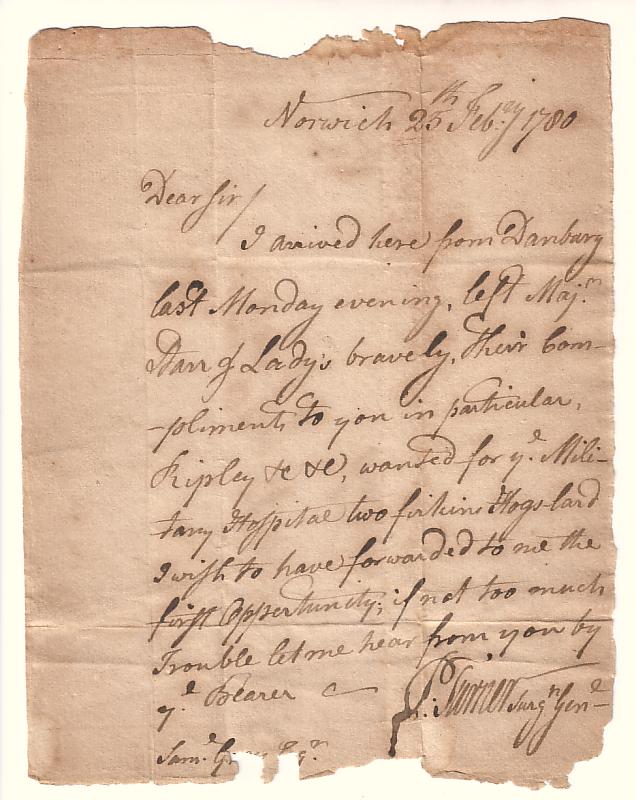 Norwich 25th Feby 1780
Dear Sir/
I arrived here from Danbury
last Monday evening, left Majr
Starr & Lady's bravely, their Com-
-pliments to you in particular,
Ripley &c &c, wanted for ye Mili-
tary Hospital two firkins Hogs lard
I wish to have forwarded to me the
first Oppertunity; if not too much
Trouble let me hear from you by
ye Bearer
P: Turner Surgn Genl
Saml